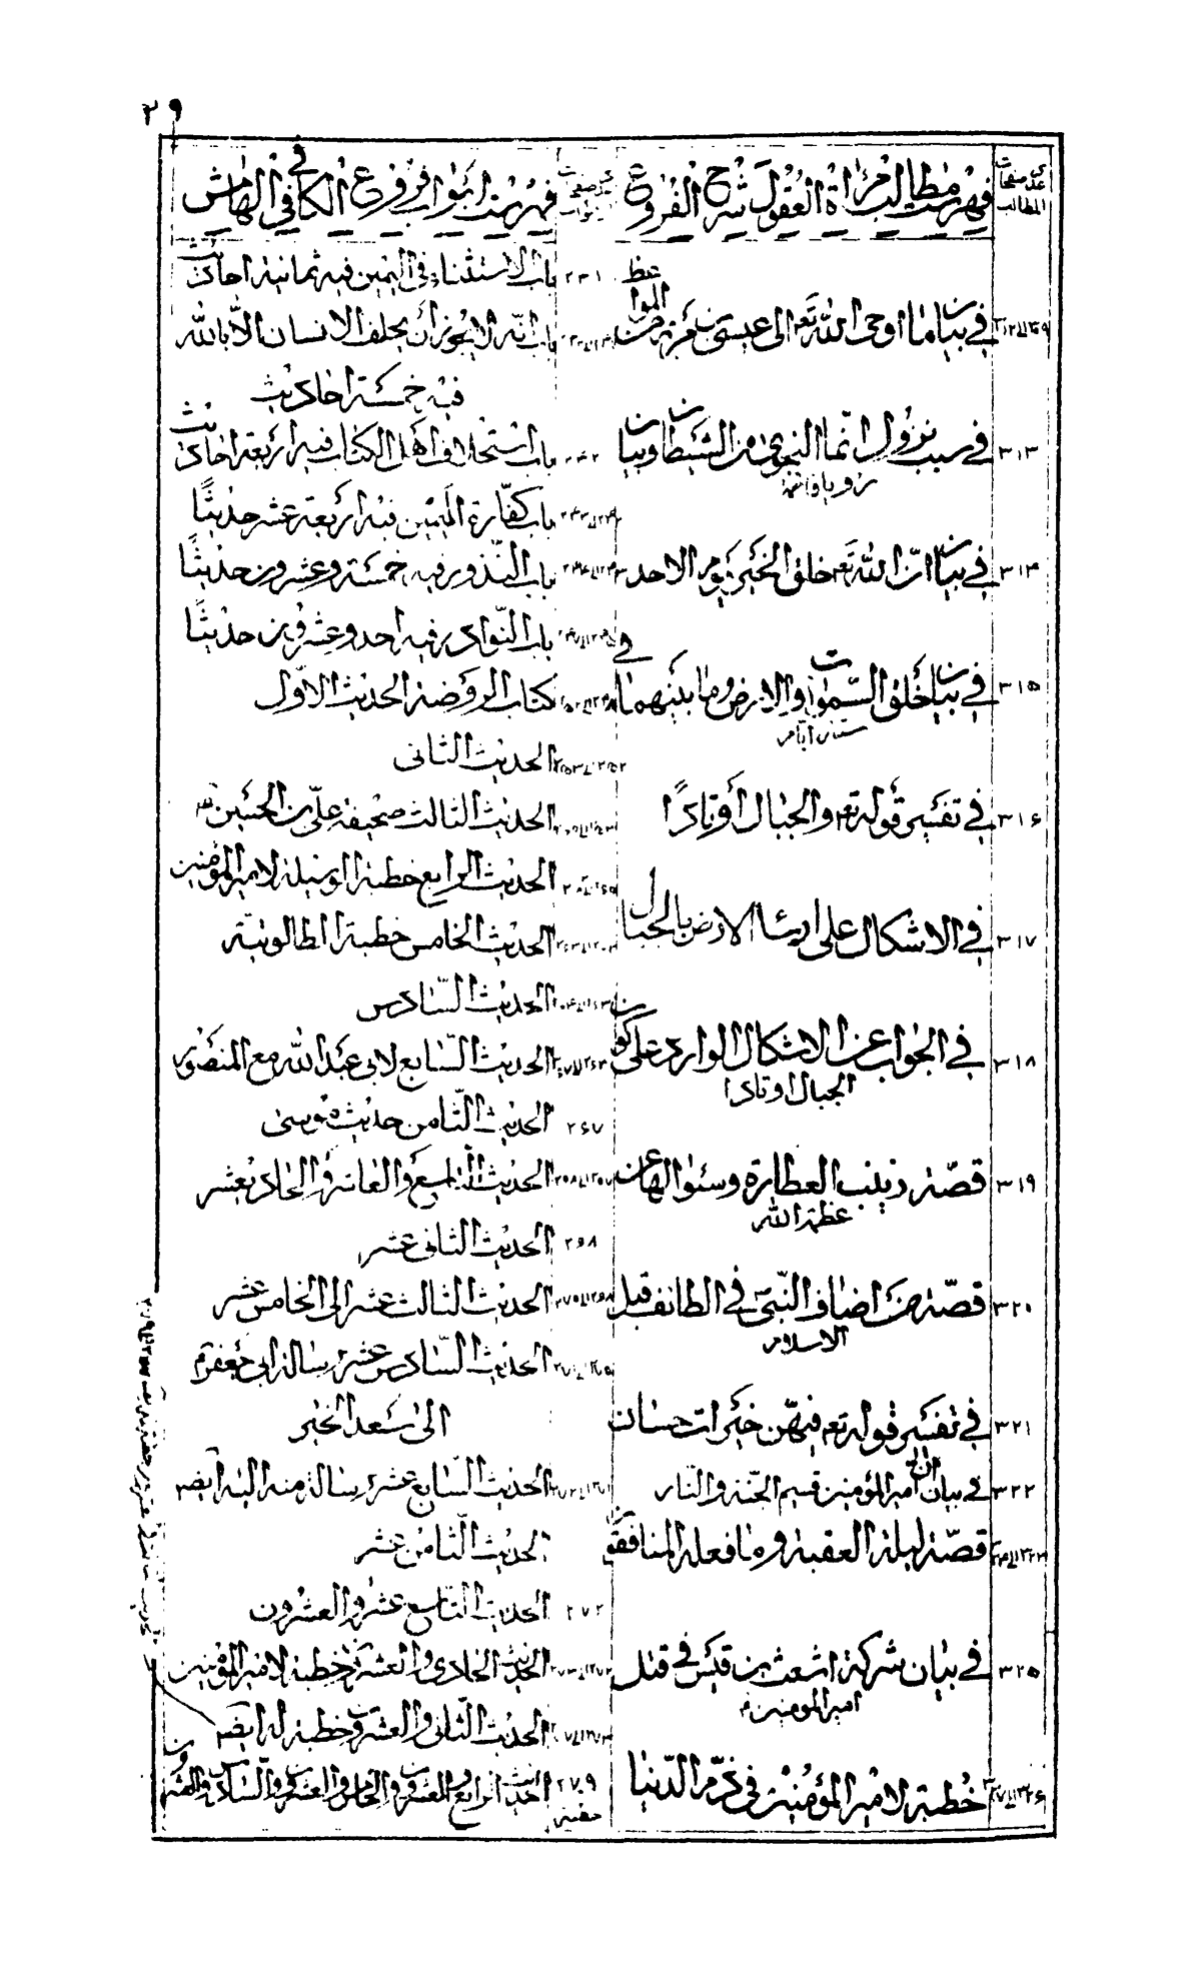 ٣٩
عدد صفحات المطالب
فهرست مطالب مرآة العقول شرح الفروع
فهرست ابواب فروع الكافى فى الهامش
فى بيان ما اوحى الله تع الى عيسى بن مريم من المواعظ
٣١٣ فى سبب نزول انّما النجوى من الشيطان وبيان
رؤيا فاطمة
٣١٤ فى بيان انّ الله تع خلق الخير يوم الاحد
٣١٥ فى بيان خلق السّموات والارض وما بينهما فى
ستة ايّام
٣١٦ فى تفسير قوله تع والجبال أوتادًا
٣١٧ فى الاشكال على ارساء الارض بالجبال
٣١٨ فى الجواب عن الاشكال الوارد على كون
الجبال اوتادا
٣١٩ قصّة زينب العطارة وسئوالها عن
عظمة الله
٣٢٠ قصّة من اضاف النّبىّ فى الطائف قبل
الاسلام
٣٢١ فى تفسير قوله تع فيهنّ خيرات حسان
٣٢٢ فى بيان ان امير المؤمنين قسيم الجنّة والنّار
قصّة ليلة العقبة وما فعله المنافقون
٣٢٥ فى بيان شركة اشعث بن قيس فى قتل
امير المومنين
خطبة لامير المؤمنين فى ذمّ الدّنيا
٢٣١ باب الاستثناء فى اليمين فيه ثمانية احاديث
باب انّه لا يجوز أن يحلف الانسان الاّ بالله
فيه خمسة احاديث
باب استحلاف اهل الكتاب فيه اربعة احاديث
باب كفّارة اليمين فيه اربعة عشر حديثًا
باب النّذور فيه خمسة وعشرون حديثًا
باب النّوادر فيه احد وعشرون حديثًا
كتاب الروضة الحديث الاوّل
الحديث الثانى
الحديث الثالث صحيفة علىّ بن الحسين
الحديث الرابع خطبة الوسيلة لامير المؤمنين
الحديث الخامس خطبة الطالوتيّة
الحديث السّادس
الحديث السّابع لابى عبد الله مع المنصور
٢٤٧ الحديث الثّامن حديث موسى
الحديث التاسع والعاشر والحاديعشر
٢٥٨ الحديث الثانى عشر
الحديث الثالث عشر الى الخامس عشر
الحديث السّادس عشر رسالة ابى جعفر
الى سعد الخير
الحديث السّابع عشر رسالة منه اليه ايضا
الحديث الثّامن عشر
٢٧٢ الحديث التّاسع عشر والعشرون
الحديث الحادى والعشرون خطبة لامير المؤمنين
الحديث الثّانى والعشرون خطبة له ايضا
٢٧٩ الحديث الرابع والعشرون والخامس والعشرون والسّادس والعشرون